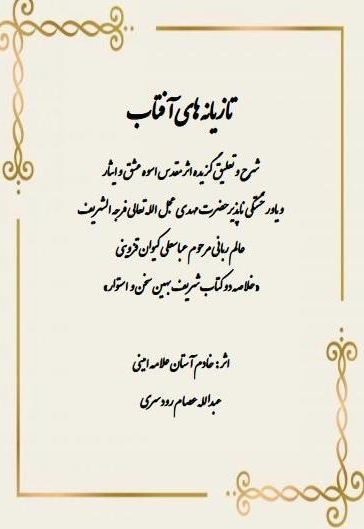 تازیانه های آفتاب
شرح و تعلیق گزیده اثر مقدس اسوه عشق و ایثار
و یاور خستگی ناپذیر حضرت مهدی عجل الله تعالی فرجه الشریف
عالم ربانی مرحوم عباسعلی کیوان قزوینی
«خلاصه دو کتاب شریف بهین سخن و استوار»
اثر: خادم آستان علامه امینی
عبدالله عصام رودسری